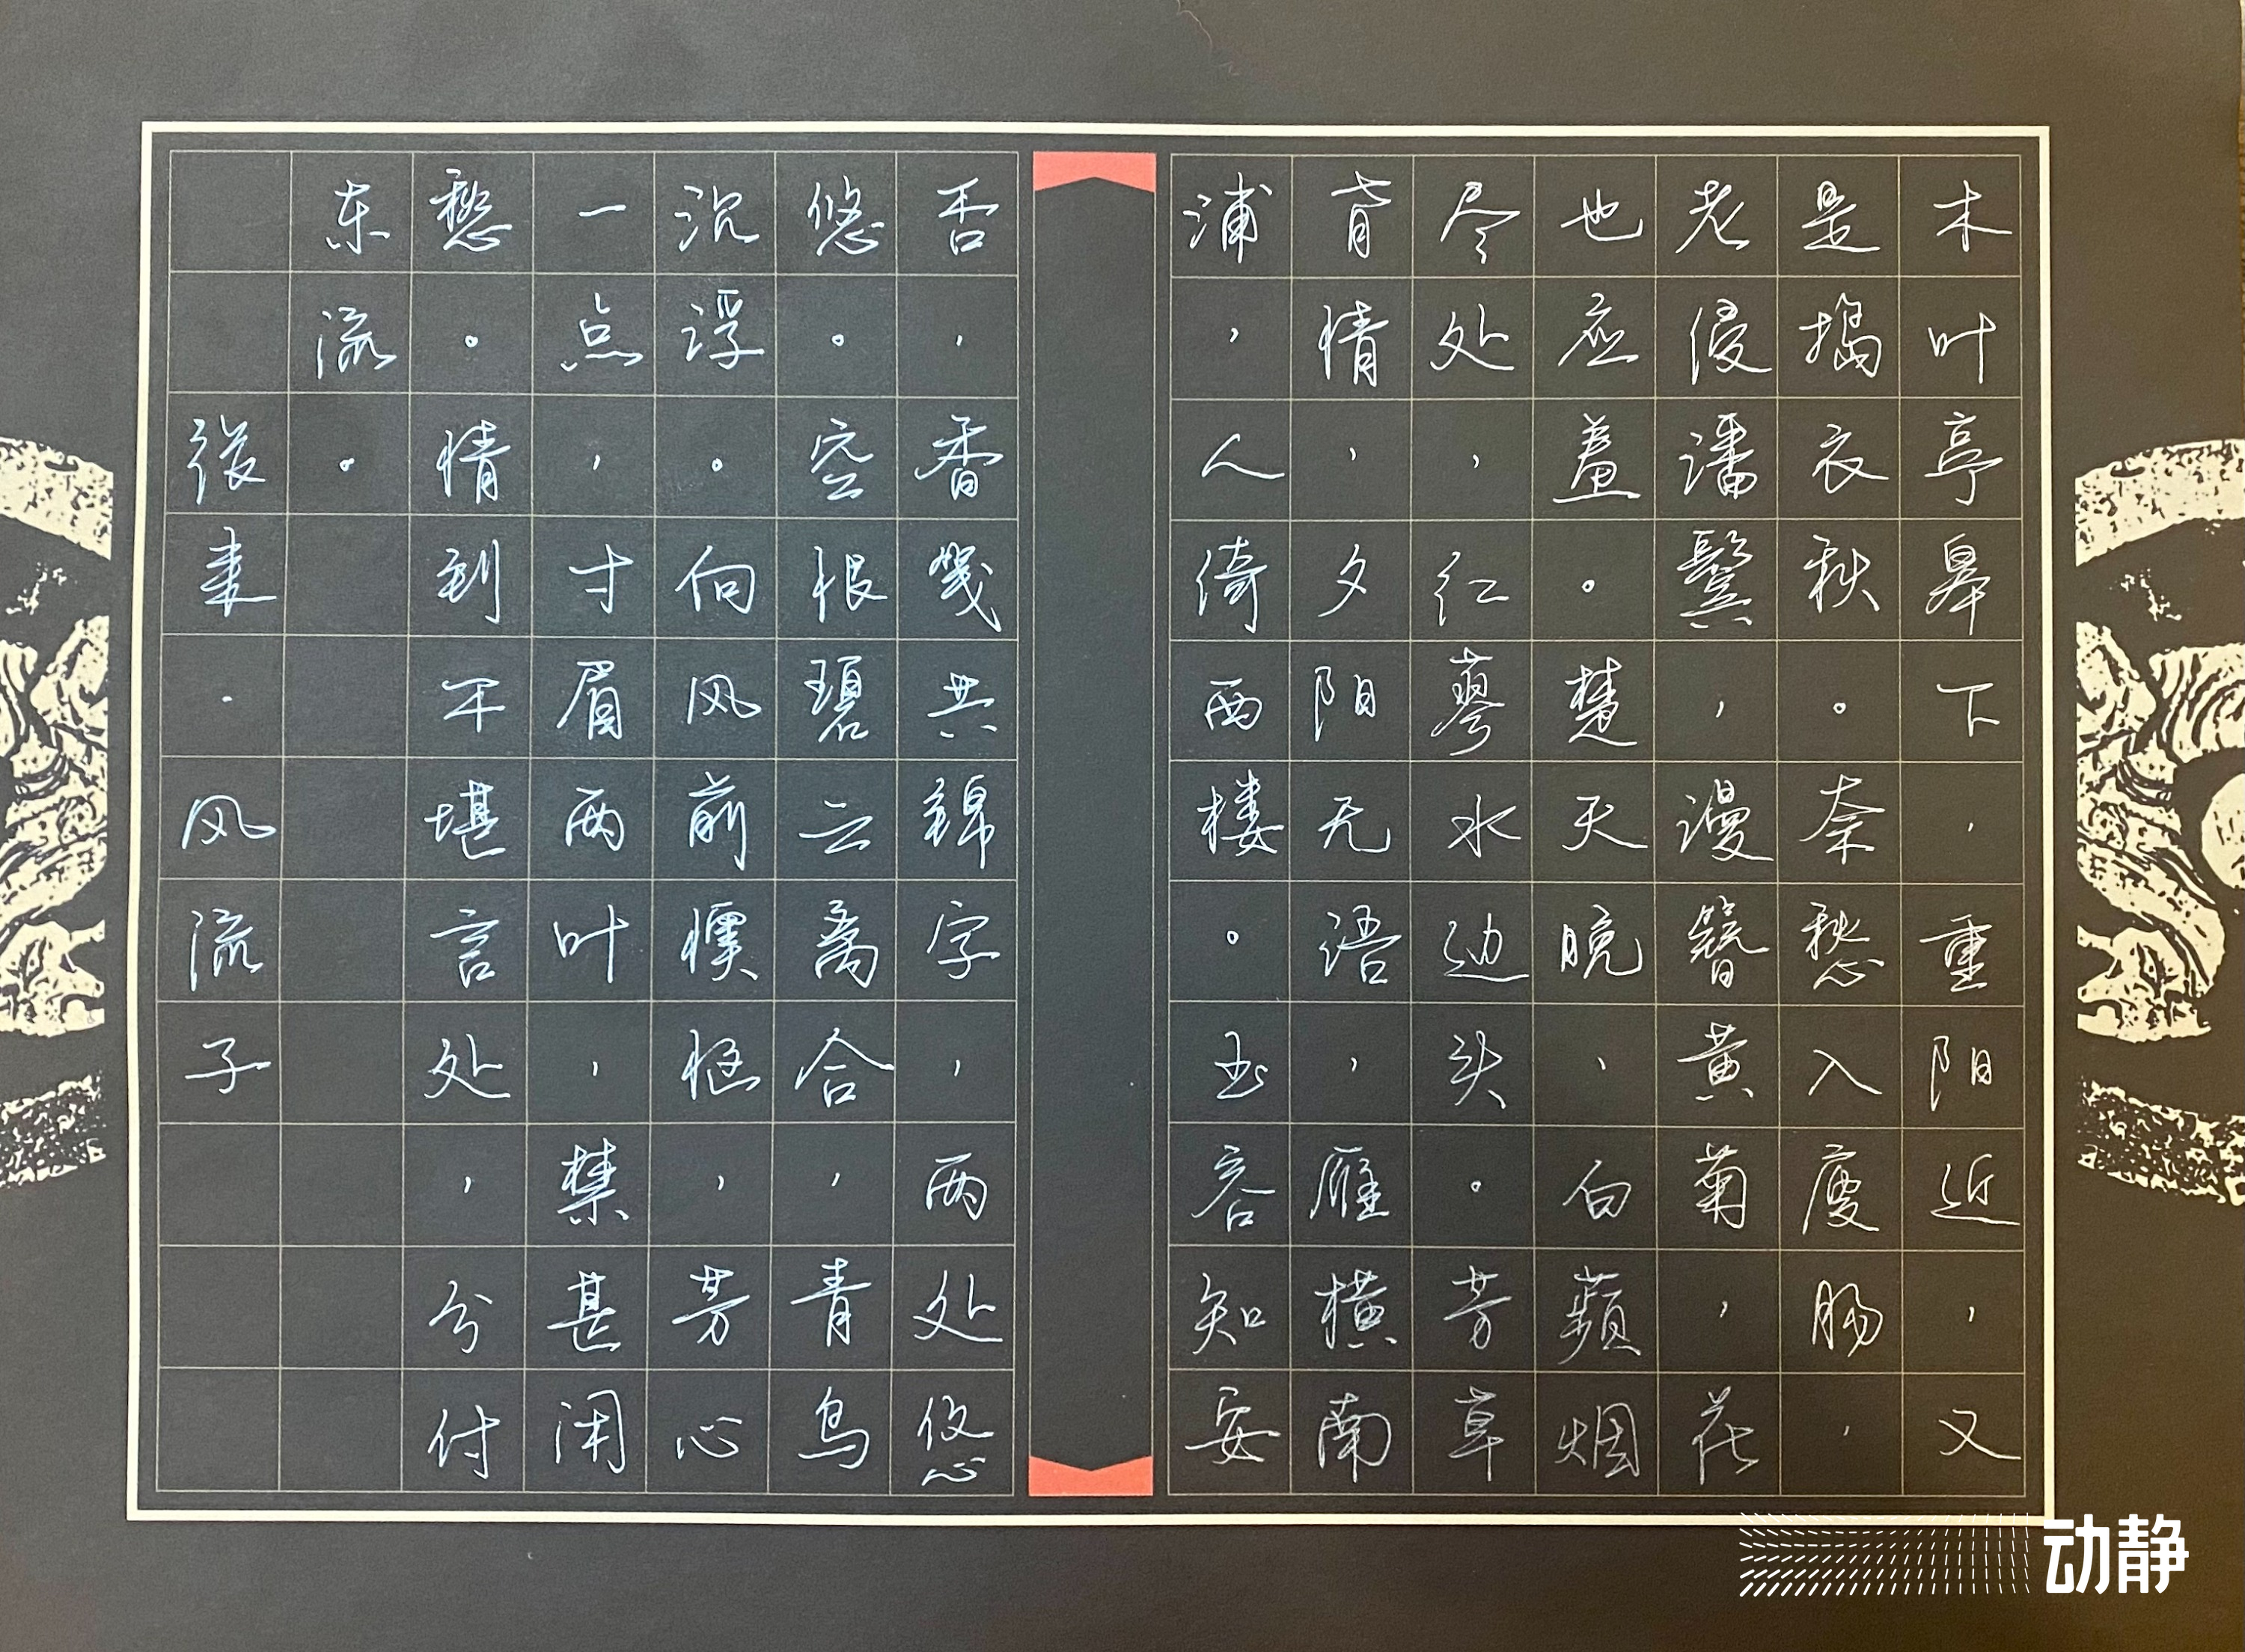 木叶亭皋下，重阳近，又
是捣衣秋。奈愁入庾肠，
老侵潘鬓，谩簪黄菊，花
也应羞。楚天晚，白蘋烟
尽处，红蓼水边头。芳草
有情，夕阳无语，雁横南
浦，人倚西楼。玉容知安
否，香笺共锦字，两处悠
悠。空恨碧云离合，青鸟
沉浮。向风前懊恼，芳心
一点，寸眉两叶，禁甚闲
愁。情到不堪言处，分付
东流。
张耒·风流子
动静